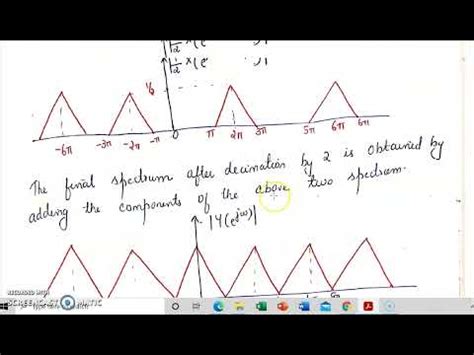 |½ X(e )|
|½ X(e )|
½
-6π -3π -2π -π 0 π 2π 3π 5π 6π 6π
The final spectrum after decimation by 2 is obtained by
adding the components of the above two spectrum.
|Y(e^{jω})|
RECORDED WITH
SCREENCAST MATIC
Type here to search